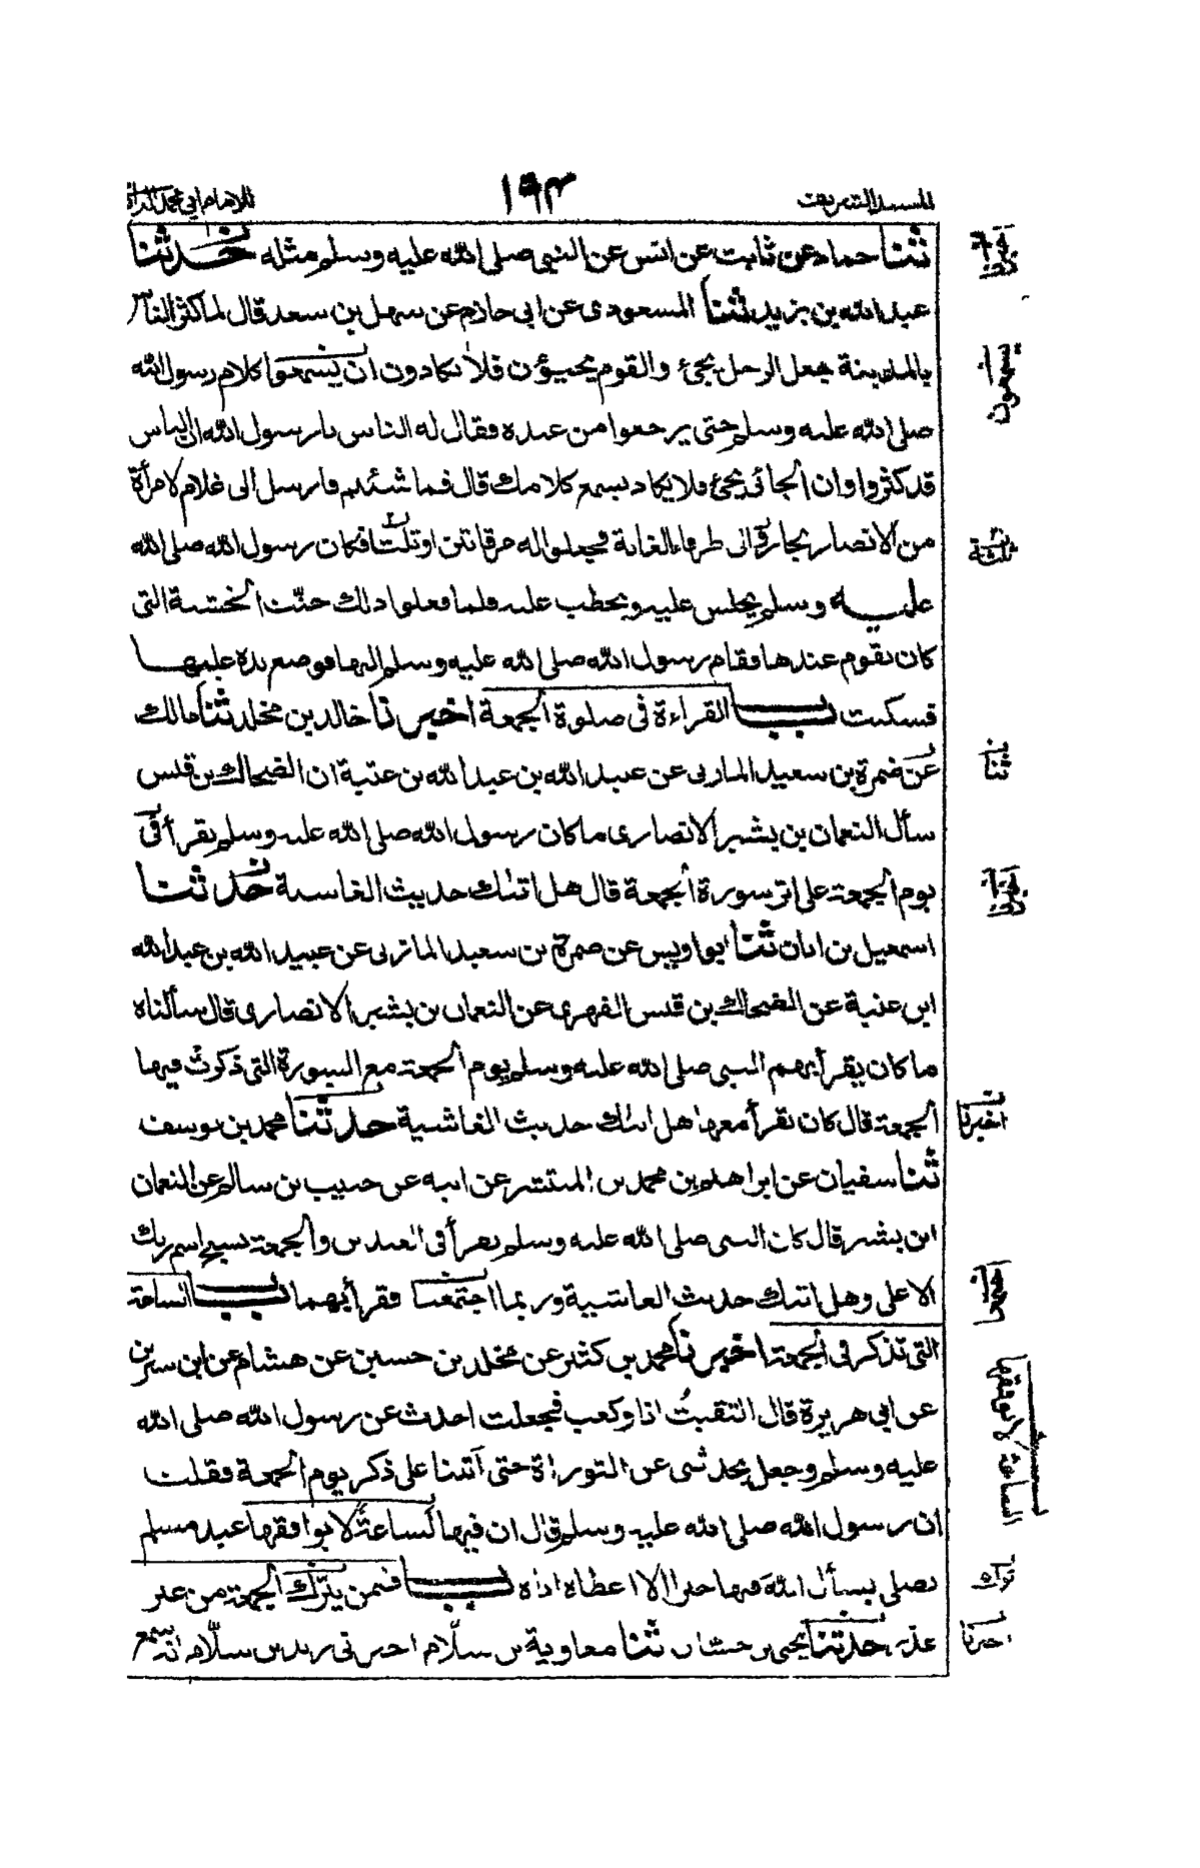 المسند الشريف ١٩٣ للامام ابي محمد الدار
ثنا حماد عن ثابت عن انس عن النبي صلى الله عليه وسلم مثله حدثنا
عبد الله بن يزيد ثنا المسعودى عن ابى حازم عن سهل بن سعد قال لما كثر الناس
بالمدينة جعل الرجل يجئ والقوم يجيؤن فلا يكادون ان يسمعوا كلام رسول الله
صلى الله عليه وسلم حتى يرجعوا من عنده فقال له الناس يا رسول الله ان الناس
قد كثروا وان الجائى يجئ فلا يكاد يسمع كلامك قال فما شئتم فارسل الى غلام لامرأة
من الانصار نجار الى طرفاء الغابة فجعلوا له مرقاتين او ثلث فكان رسول الله صلى الله
عليه وسلم يجلس عليه ويخطب عليه فلما فعلوا ذلك حنّت الخشبة التى
كان يقوم عندها فقام رسول الله صلى الله عليه وسلم اليها فوضع يده عليها
فسكنت باب القراءة فى صلوة الجمعة اخبرنا خالد بن مخلد ثنا مالك
عن ضمرة بن سعيد المازنى عن عبيد الله بن عبد الله بن عتبة ان الضحاك بن قيس
سأل النعمان بن بشير الانصارى ما كان رسول الله صلى الله عليه وسلم يقرأ فى
يوم الجمعة على اثر سورة الجمعة قال هل اتىك حديث الغاشية حدثنا
اسمعيل بن ابان ثنا ابو اويس عن ضمرة بن سعيد المازنى عن عبيد الله بن عبد الله
ابن عتبة عن الضحاك بن قيس الفهرى عن النعمان بن بشير الانصارى قال سألناه
ما كان يقرأ بهم النبى صلى الله عليه وسلم يوم الجمعة مع السورة التى ذكرت فيها
الجمعة قال كان يقرأ معها هل اتىك حديث الغاشية حدثنا محمد بن يوسف
ثنا سفيان عن ابراهيم بن محمد بن المنتشر عن ابيه عن حبيب بن سالم عن النعمان
ابن بشير قال كان النبى صلى الله عليه وسلم يقرأ فى العيدين والجمعة بسبح اسم ربك
الاعلى وهل اتىك حديث الغاشية وربما اجتمعتا فقرأ بهما باب الساعة
التى تذكر فى الجمعة اخبرنا محمد بن كثير عن مخلد بن حسين عن هشام عن ابن سيرين
عن ابى هريرة قال التقيتُ انا وكعب فجعلت احدث عن رسول الله صلى الله
عليه وسلم وجعل يحدثنى عن التوراة حتى آتينا على ذكر يوم الجمعة فقلت
ان رسول الله صلى الله عليه وسلم قال ان فيها لساعةً لا يوافقها عبد مسلم
يصلى يسأل الله فيها خيرا الا اعطاه اياه باب فيمن يترك الجمعة من غير
عذر حدثنا يحيى بن حسّان ثنا معاوية بن سلّام اخبرنى زيد بن سلّام انه سمع
يسمعون
ثلثة
ثنا
اخبرنا
اجتمعا
الساعة لا يوافقها
ترك
اخبرنا